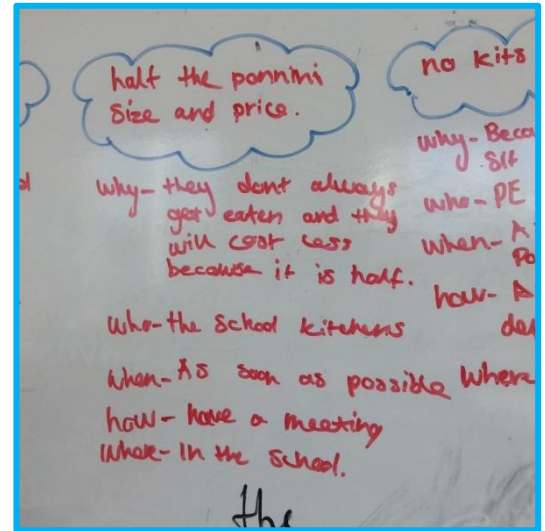 half the pannini
size and price.
why- they dont always
get eaten and they
will cost less
because it is half.
who- the school kitchens
when- As soon as possible
how- have a meeting
where- In the school.
the
no kits
why- Beca
sit
who- PE
when- A
Po
how- A
den
where